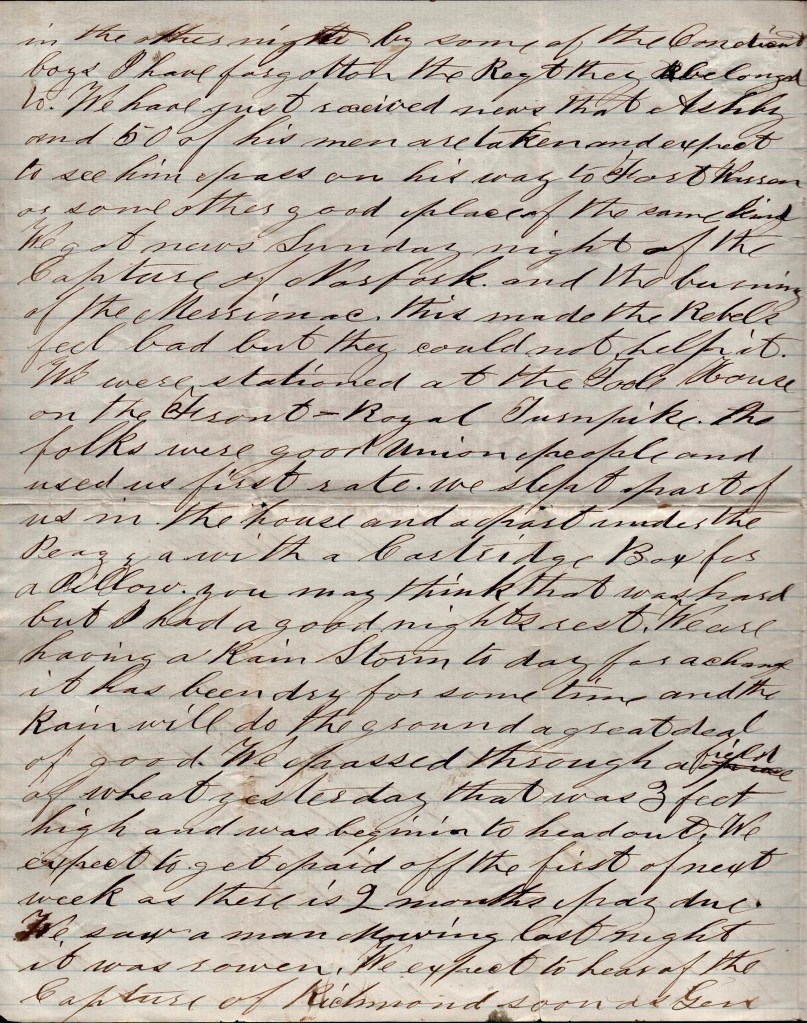 in the other night by some of the
boys I have forgotton the Regt they belonged
to. We have just received news that Ashby
and 50 of his men are taken and expect
to see him pass on his way to Fort Warren
or some other good place of the same kind
We got news Sunday night of the
Capture of Norfork. and the burning
of the Merrimac. this made the Rebels
feel bad but they could not help it.
We were stationed at the House
on the Front = Royal Turnpike. the
folks were good Union people and
used us first rate. we slept part of
us in the house and a part under the
Peazza with a Cartridge Box for
a Pillow. you may think that was hard
but I had a good nights rest. We are
having a Rain Storm to day for a change
it has been dry for some time and the
Rain will do the ground a great deal
of good. We passed through a field
of wheat yesterday that was 3 feet
high and was beginin to head out. We
expect to get paid off the first of next
week as there is 2 months pay due.
We saw a man Mowing last night
it was rowen. We expect to hear of the
Capture of Richmond soon as Gen